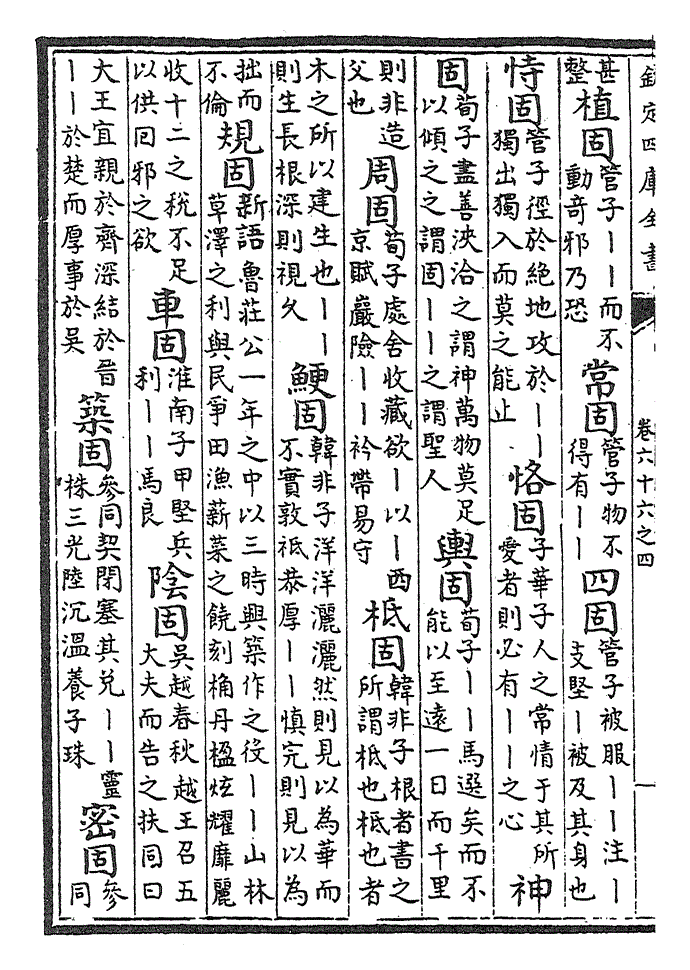 欽定四庫全書 卷六十六之四
甚整 植固 管子｜｜而不動奇邪乃恐 常固 管子物不得有｜｜ 四固 管子被服｜｜注｜支堅｜被及其身也
恃固 管子徑於絕地攻於｜｜獨出獨入而莫之能止 恪固 子華子人之常情于其所愛者則必有｜｜之心 神
固 荀子盡善浹洽之謂神萬物莫足以傾之之謂固｜｜之謂聖人 輿固 荀子｜｜馬選矣而不能以至遠一日而千里
則非造父也 周固 荀子處舍收藏欲｜以｜西京賦巖險｜｜衿帶易守 柢固 韓非子根者書之所謂柢也柢也者
木之所以建生也｜｜則生長根深則視久 鯁固 韓非子洋洋灑灑然則見以為華而不實敦祗恭厚｜｜慎完則見以為
拙而不倫 規固 新語魯莊公一年之中以三時興築作之役｜｜山林草澤之利與民爭田漁薪菜之饒刻桷丹楹炫耀靡麗
收十二之稅不足以供囘邪之欲 車固 淮南子甲堅兵利｜｜馬良 陰固 吳越春秋越王召五大夫而告之扶同曰
大王宜親於齊深結於晉｜｜於楚而厚事於吳 築固 參同契閉塞其兌｜｜靈株三光陸沉溫養子珠 密固 參同